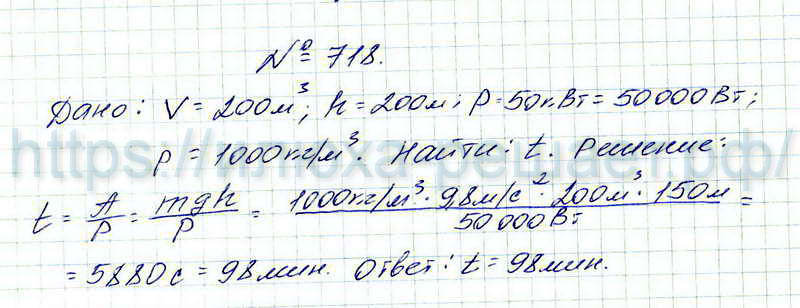 № 718.
Дано: V = 200м³; h = 200м; P = 50кВт = 50000Вт;
ρ = 1000кг/м³. Найти: t. Решение:
t = A/P = mgh/P = 1000кг/м³ · 9,8м/с² · 200м³ · 150м / 50000Вт =
= 5880с = 98мин. Ответ: t = 98мин.